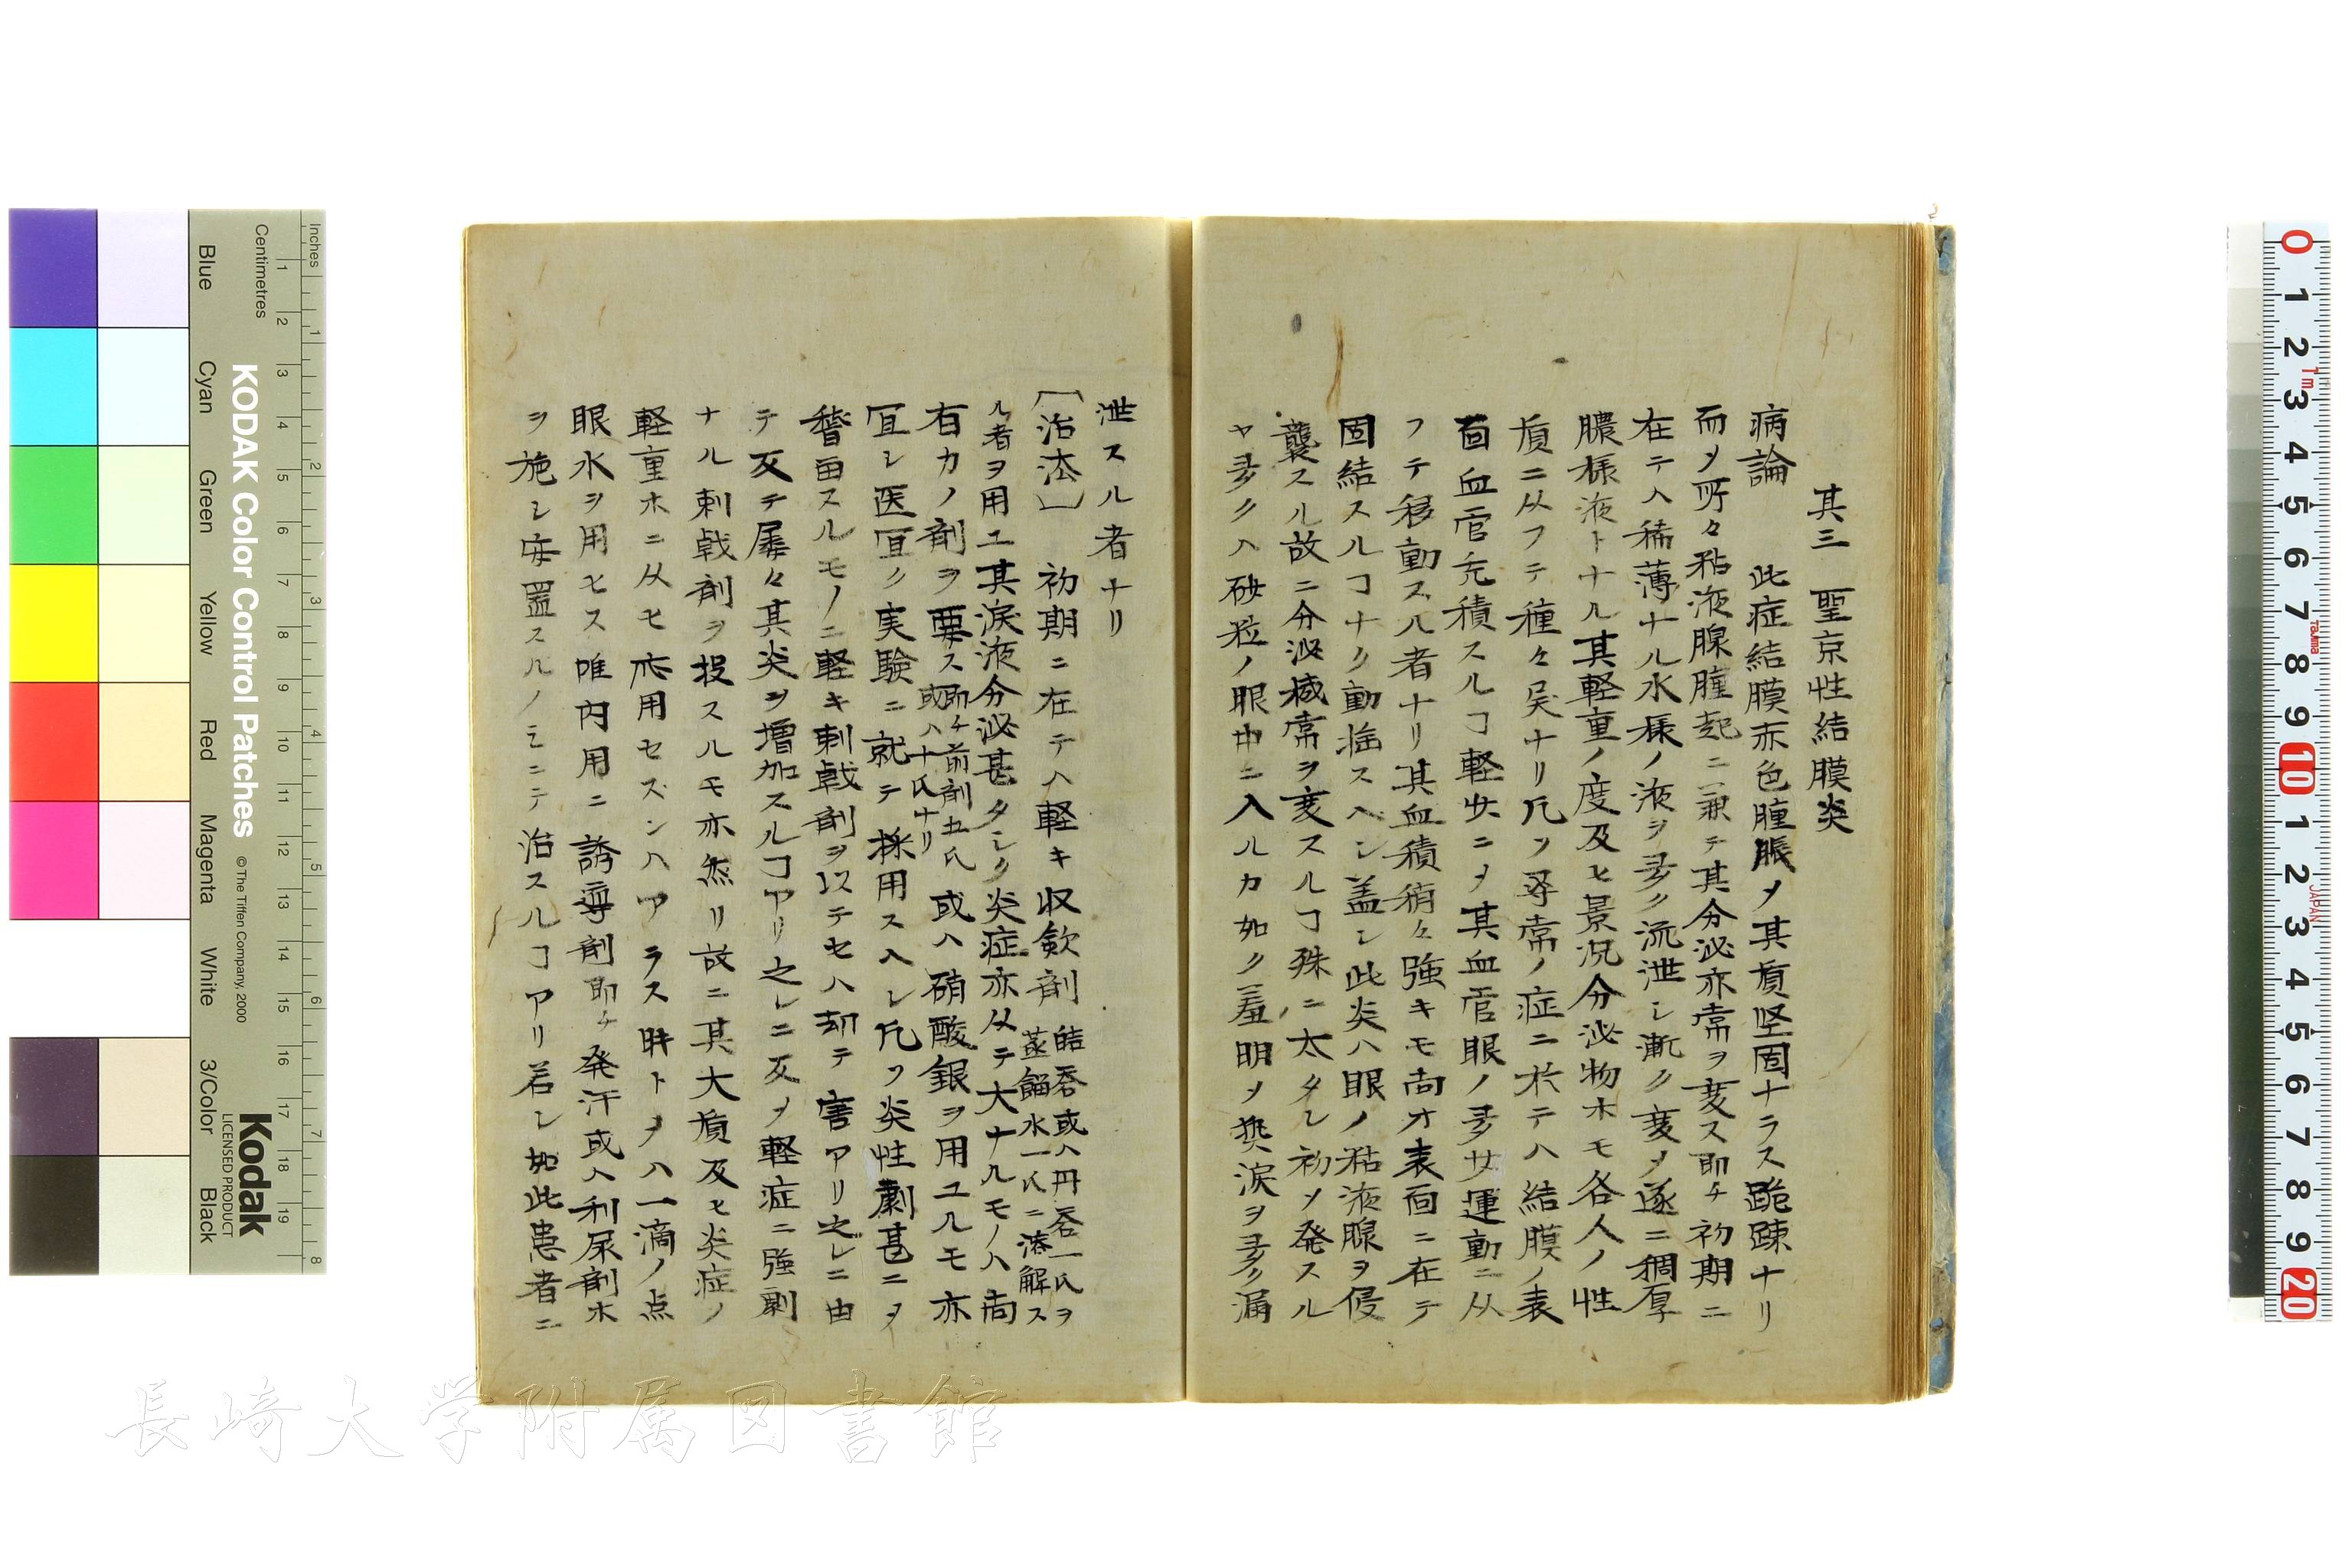 其三 聖京性結膜炎
病論 此症結膜赤色腫脹メ其質坚固ナラス跪踈ナリ
而メ所々粘液腺腫起ニ兼テ其分泌亦常ヲ変ス即チ初期ニ
在テハ稀薄ナル水様ノ液ヲ多ク流泄シ漸ク変メ遂ニ稠厚
膿様液トナル其軽重ノ度及ヒ景况分泌物ホモ各人ノ性
質ニ从フテ種々异ナリ凡ソ尋常ノ症ニ於テハ結膜ノ表
面血管充積スルヿ軽少ニメ其血管眼ノ多サ運動ニ从
フテ移動スル者ナリ其血積稍々強キモ尚才表面ニ在テ
固結スルヿナク動揺スヘシ盖シ此炎ハ眼ノ粘液腺ヲ侵
襲スル故ニ分泌機常ヲ変スルヿ殊ニ太タシ初メ発スル
ヤ多クハ砂粒ノ眼中ニ入ルカ如ク羞明メ熱涙ヲ多ク漏
泄スル者ナリ
〔治法〕 初期ニ在テハ軽キ収歛剤 皓礬或ハ丹礬一氏ヲ蒸餾水一氏ニ溶解ス
ル者ヲ用ユ其涙液分泌甚タシク炎症亦从テ大ナルモノハ尚
有力ノ剤ヲ要ス 即チ前剤五氏或ハ十氏ナリ 或ハ硝酸銀ヲ用ユルモ亦
宜シ医宜ク実験ニ就テ採用スヘシ凡ソ炎性劇甚ニメ
稽留スルモノニ軽キ刺戟剤ヲ以テセハ却テ害アリ之レニ由
テ反テ屡々其炎ヲ増加スルヿアリ之レニ反メ軽症ニ強劇
ナル刺戟剤ヲ投スルモ亦然リ故ニ其大質及ヒ炎症ノ
軽重ホニ从ヒ応用セズンハアラス時トメハ一滴ノ点
眼水ヲ用ヒス唯内用ニ誘導剤即チ発汗或ハ利尿剤ホ
ヲ施シ安置スルノミニテ治スルヿアリ若シ如此患者ニ
KODAK Color Control Patches
© The Tiffen Company, 2000
Kodak
LICENSED PRODUCT
Inches
Centimetres
Blue Cyan Green Yellow Red Magenta White 3/Color Black
長崎大学附属図書館